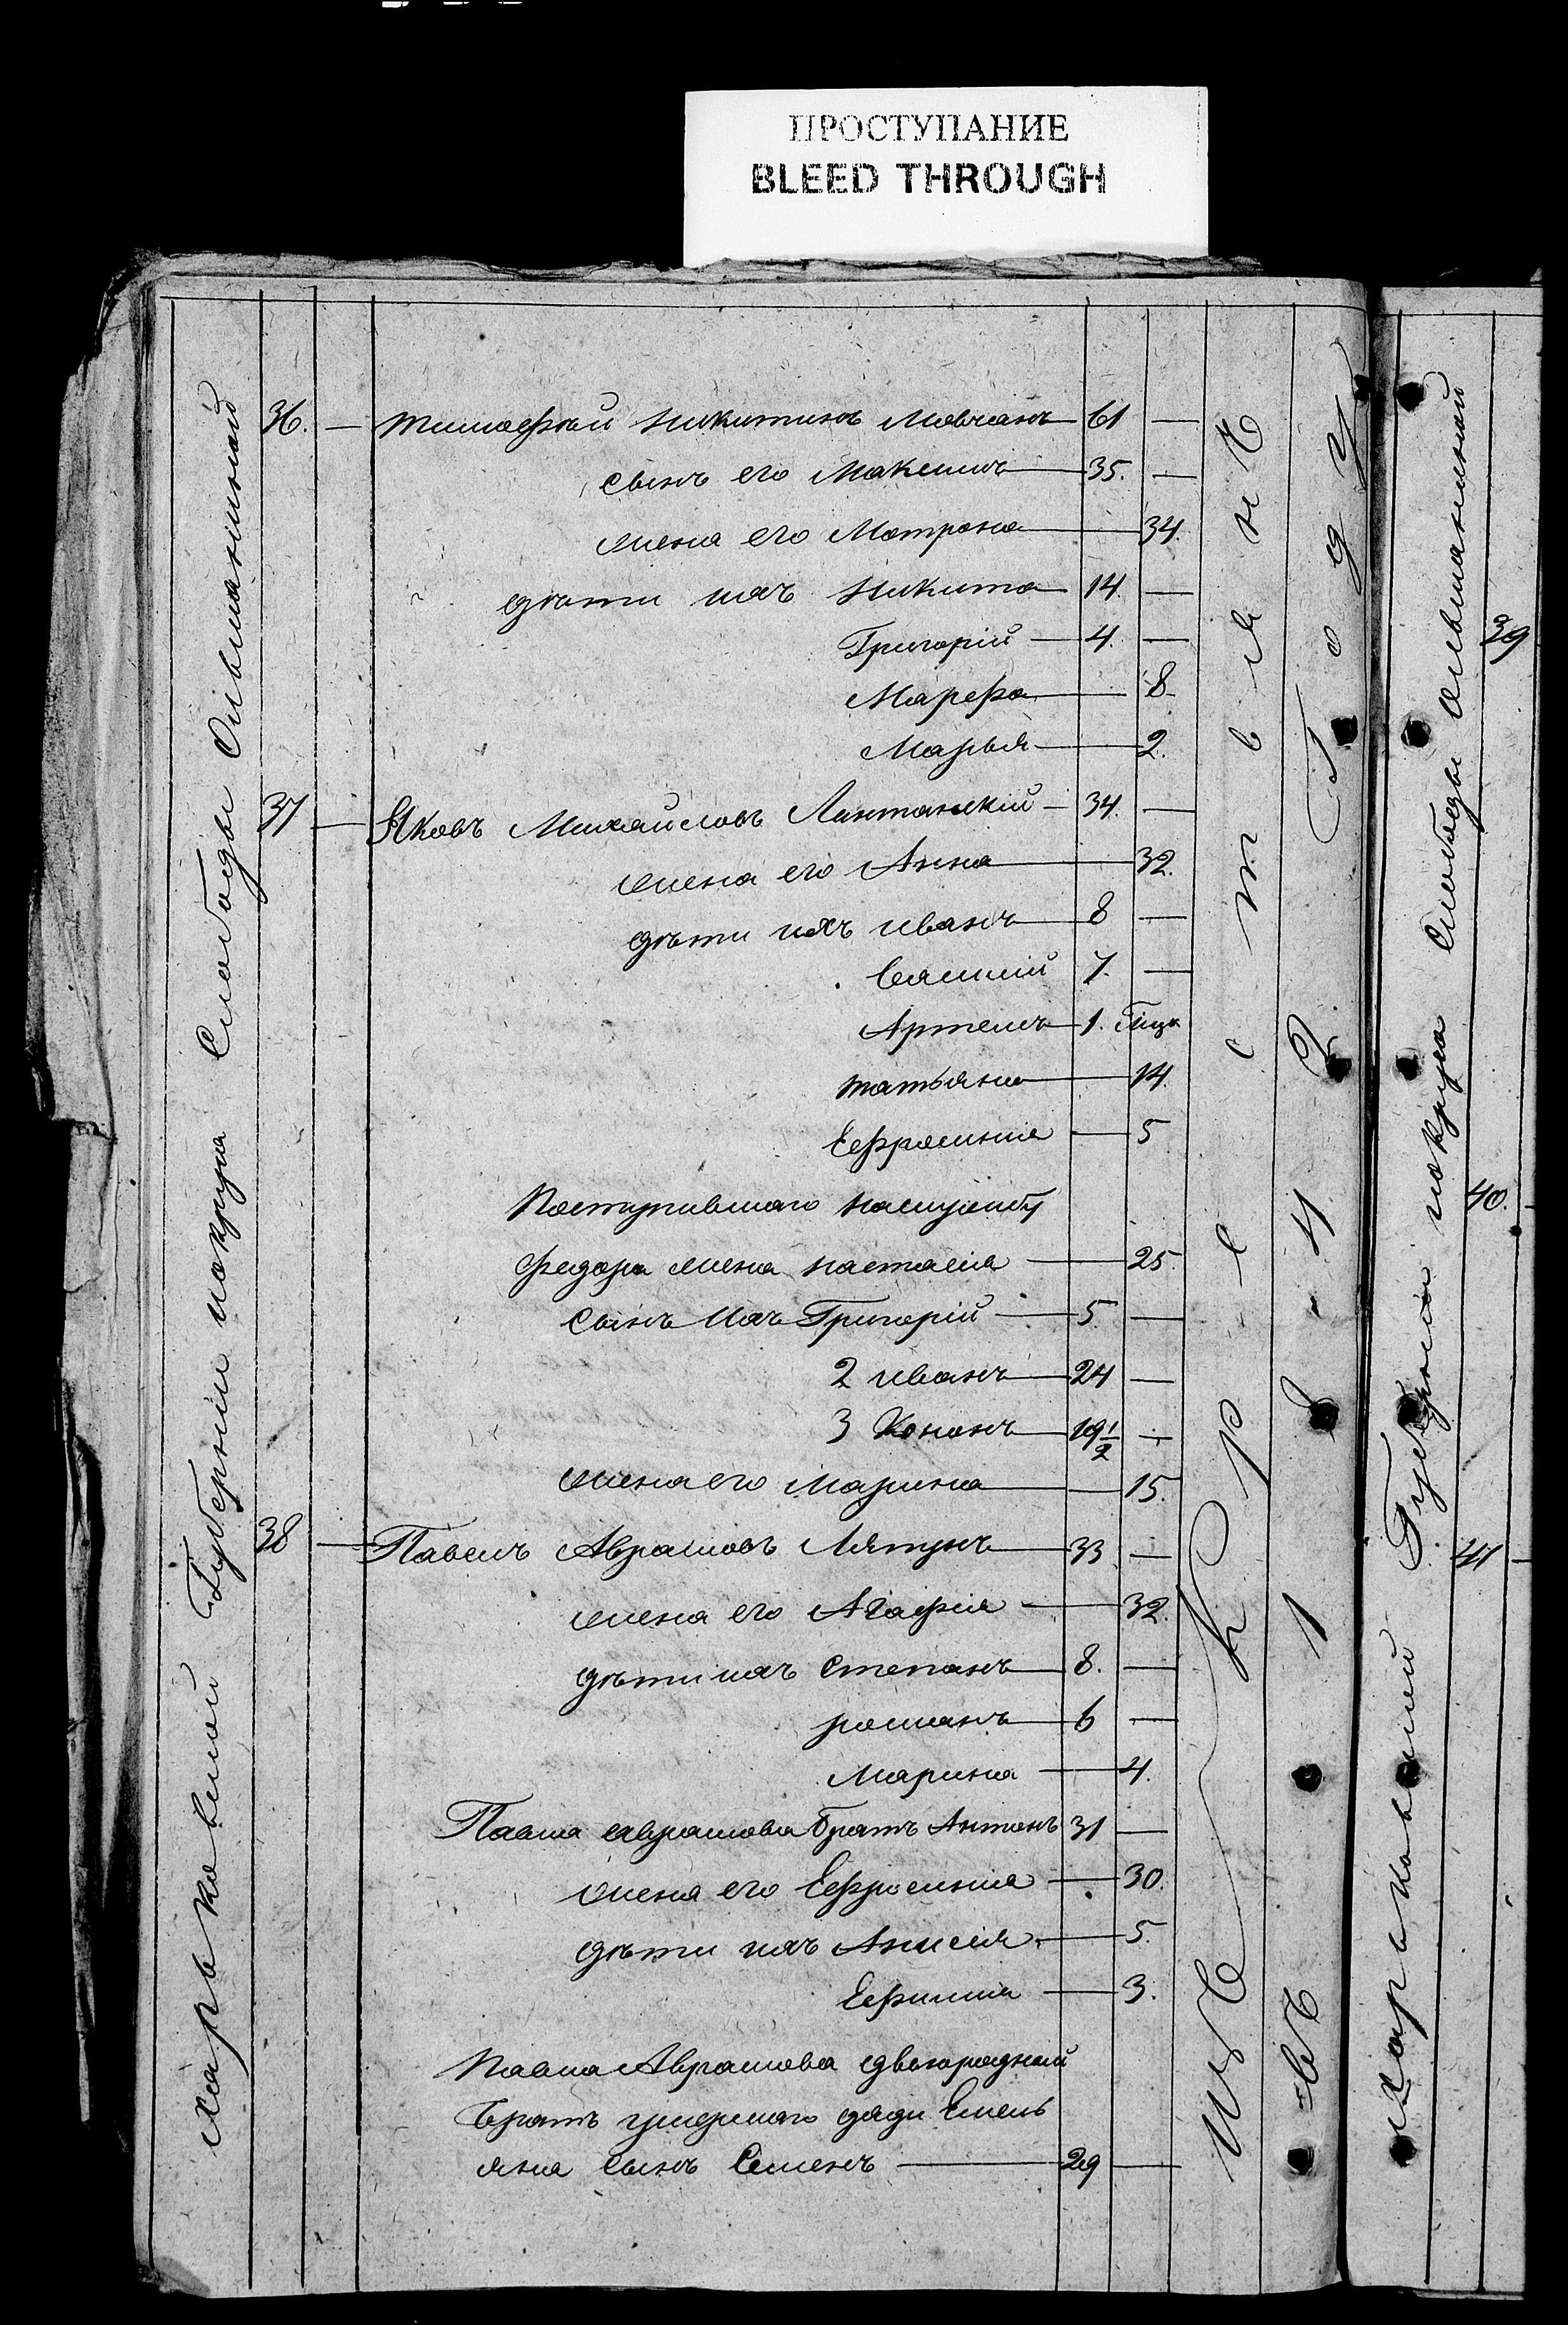 ПРОСТУПАНИЕ
BLEED THROUGH
Харьковской Губернии и округа Слободы Ольшанской
36. — тимофѣй Никитинъ Мовчанъ — 61 —
сынъ его Максимъ — 35. —
жена его Матрона — 34.
дѣти ихъ Никита — 14. —
Григорій — 4. —
Марфа — 8.
Марья — 2.
37 — Яковъ Михайловъ — 34. —
жена его Анна — 32.
дѣти ихъ иванъ — 8 —
Василій 7. —
Артемъ — 1.
татьяна — 14.
Ефросинія — 5
Поступившаго
федора жена настасія — 25.
Сынъ ихъ Григорій — 5 —
2 иванъ — 24 —
3 Кононъ — 19 1/2 —
жена его марина — 15.
38 — Павелъ Аврамовъ Ляпунъ — 33 —
жена его Агафія — 32.
дѣти ихъ Степанъ — 8. —
романъ — 6 —
Марина — 4.
Павла аврамова братъ Антонъ 31 —
жена его Ефросинія — 30.
дѣти ихъ Анисія — 5.
Ефимія — 3.
Павла Аврамова двоюродный
братъ умершаго дяди Емель
яна сынъ Семенъ — 29 —
въ 18 - 42 Году
Харьковской Губернии и округа Слободы ольшанской
39
40.
41 —